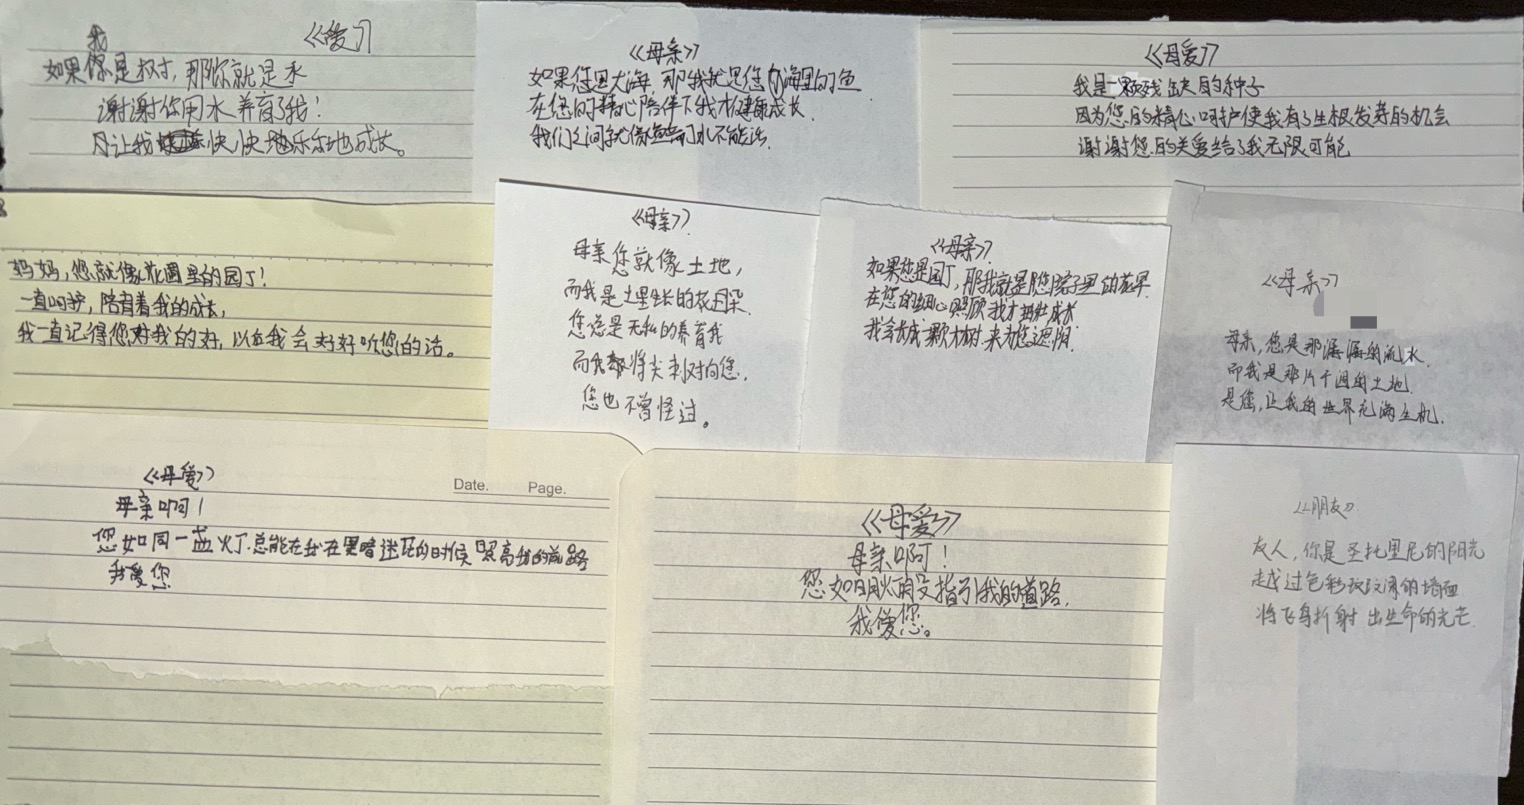 《爱》
如果我是树，那你就是水
谢谢你用水养育了我！
让我快快乐乐地成长。
《母亲》
如果您是大海，那我就是您海里的鱼
在您的精心陪伴下我才健康成长.
我们之间就像鱼离水不能活.
《母爱》
我是一颗残缺的种子
因为您的精心呵护使我有了生根发芽的机会
谢谢您的关爱给了我无限可能
妈妈，您就像花园里的园丁！
一直呵护，陪着我的成长，
我一直记得您对我的好，以后我会好好听您的话。
《母亲》
母亲您就像土地，
而我是土里生长的花朵.
您总是无私的养育我
而我将尖刺对向您，
您也不曾怪过。
《母亲》
如果您是园丁，那我就是您院子里的花草.
在您的细心照顾我才茁壮成长
我会长成大树来为您遮阴.
《母亲》
母亲，您是那潺潺的流水
而我是那片干涸的土地
是您，让我的世界充满生机.
Date. Page.
《母爱》
母亲啊！
您如同一盏灯.总能在我在黑暗迷茫的时候照亮我的前路
我爱您
《母爱》
母亲啊！
您如明火的指引我的道路.
我爱您。
《朋友》
友人，你是圣托里尼的阳光
越过色彩斑斓的墙面
将飞鸟折射出生命的光芒